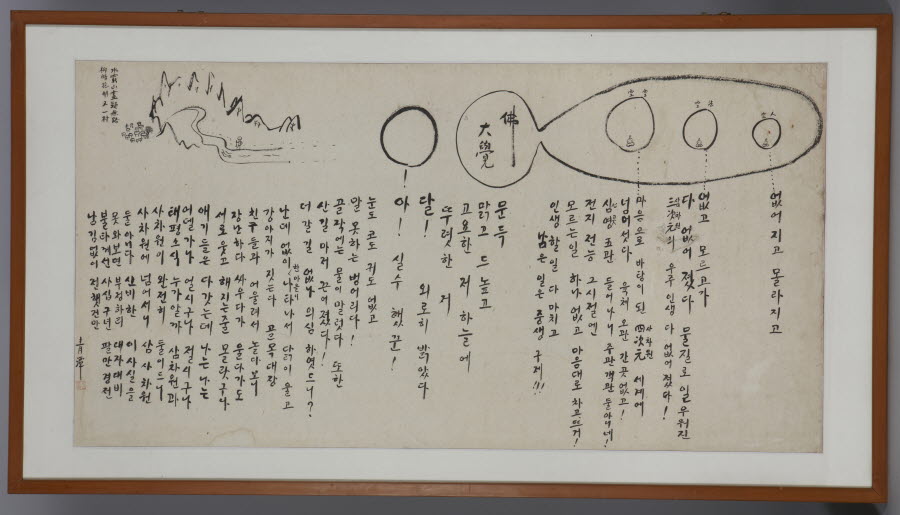 佛
大覺
없어지고 몰라지고
없고 모르고가
다 없어졌다 물질로 일우워진
三次元의 우주 인생 다 없어졌다!
마음으로 바탕이 된 四次元 세계에
사차원
넘어섯다. 육처 오관 간곳없고!
들어나니 주관객관 둘아니네!
전지 전능 그시절엔
모르는일 하나없고 마음대로
인생할일 다 마치고
남은 일은 중생 구제!!!
문득
맑고 드높고
고요한 저 하늘에
뚜렷한 저
달! 외로히 밝았다
아! 실수 했군!
눈도 코도 귀도 없고
말 못하는 벙어리다!
골작에는 물이 말렀다 또한
산길마저 끈어졌다!
더 갈길 없나 의심하엿드니?
난데없이 나타나서 닭이 울고
강아지가 짓는다 꼬목대장
친구들과 어울려서 놀다보니
장난하다 싸우다가 울다가도
새로웃고 해진는줄 몰랏구나
얘기들은 다 갓는데 나는 나는
어델 가나 얼시구나 절시구나
태평소식 누가알까 삼차원과
사차원이 완전히 둘이드니
사차원에 넘어서니 삼사차원
둘아니다 신비한 이사실을
못와보면 부정하리 대자대비
불타게선 사십구년 팔만경전
남김없이 전햇건만